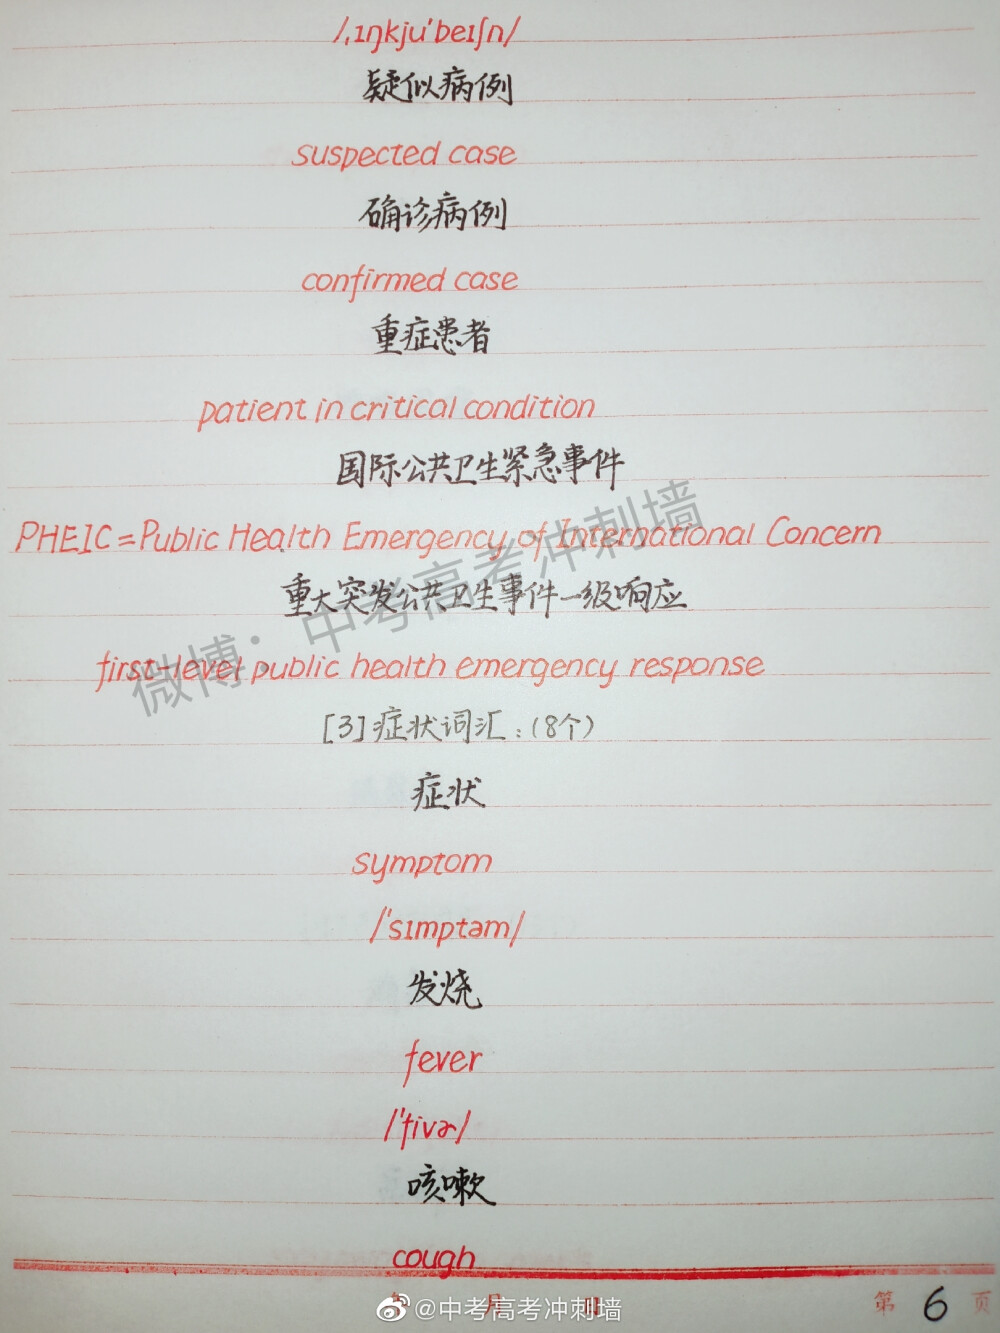 /ˌɪŋkjuˈbeɪʃn/
疑似病例
suspected case
确诊病例
confirmed case
重症患者
patient in critical condition
国际公共卫生紧急事件
PHEIC=Public Health Emergency of International Concern
重大突发公共卫生事件一级响应
first-level public health emergency response
微博：中考高考冲刺墙
[3]症状词汇：(8个)
症状
symptom
/ˈsɪmptəm/
发烧
fever
/ˈfivɚ/
咳嗽
cough
@中考高考冲刺墙
第 6 页